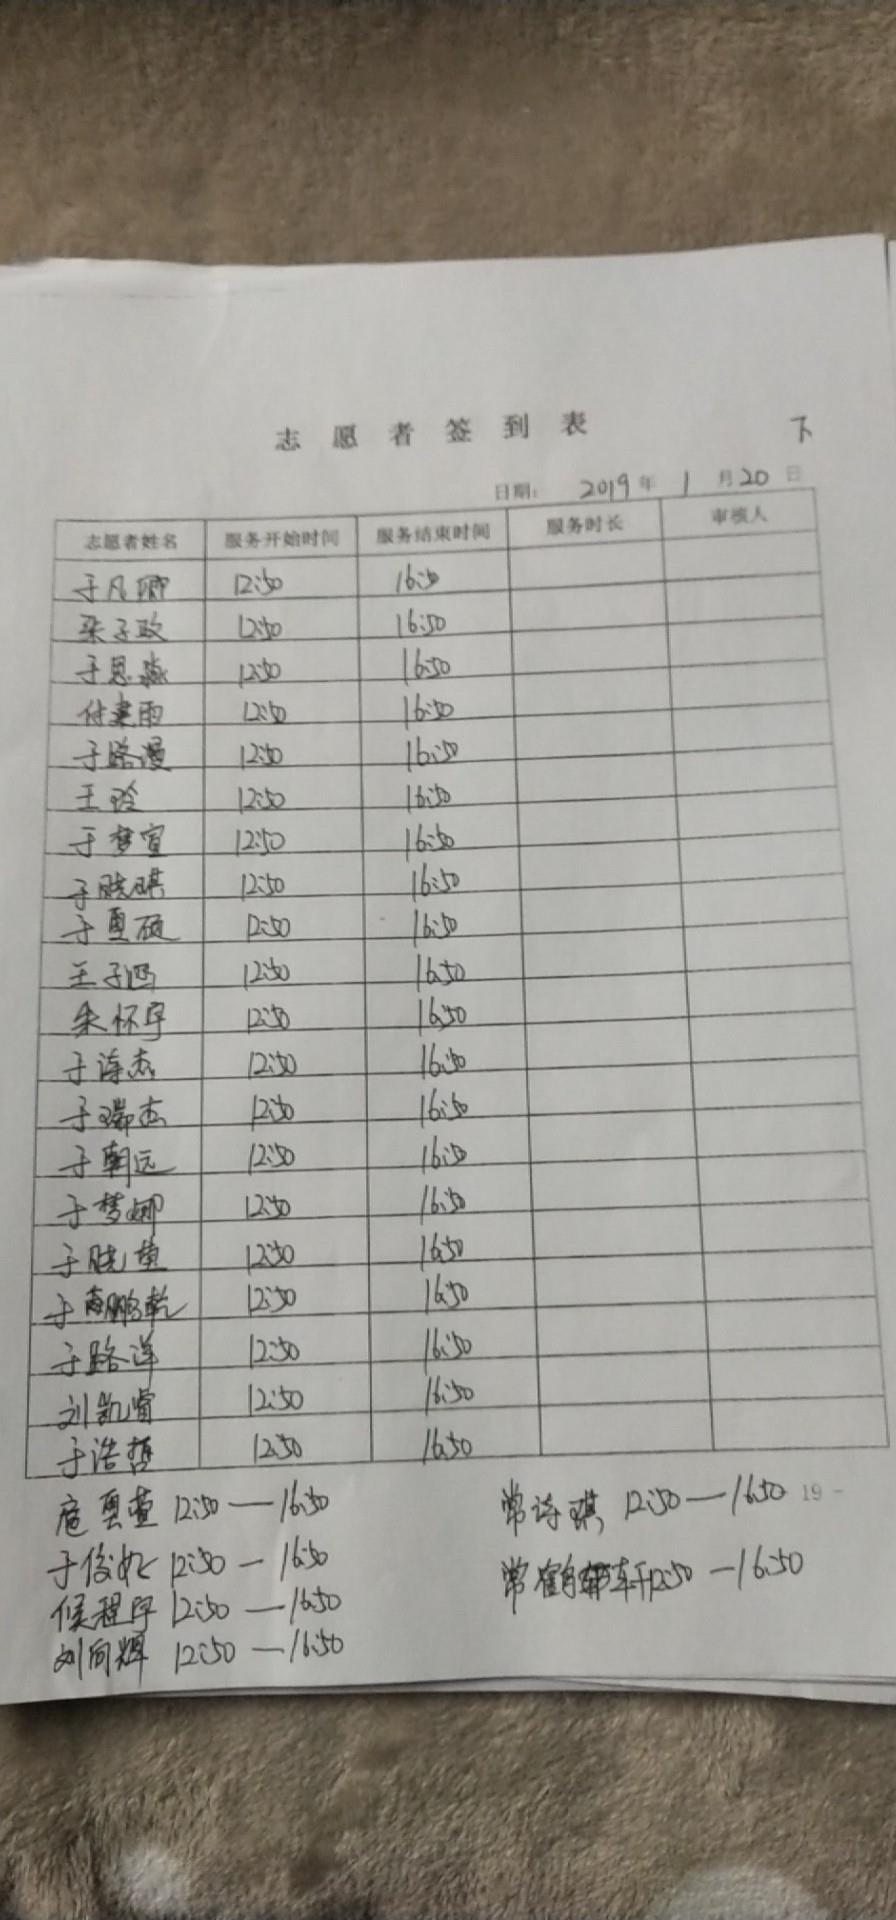 志愿者签到表 下
日期: 2019年1月20日
志愿者姓名 服务开始时间 服务结束时间 服务时长 审核人
于凡卿 12:50 16:50
栾子政 12:50 16:50
于思淼 12:50 16:50
付建雨 12:50 16:50
于路漫 12:50 16:50
王玲 12:50 16:50
于梦宣 12:50 16:50
于晓琪 12:50 16:50
于夏硕 12:50 16:50
王子 12:50 16:50
朱怀宇 12:50 16:50
于涛杰 12:50 16:50
于瑞杰 12:50 16:50
于朝远 12:50 16:50
于梦娜 12:50 16:50
于晓 12:50 16:50
于鹏乾 12:50 16:50
于路洋 12:50 16:50
刘凯睿 12:50 16:50
于浩哲 12:50 16:50
夏萱 12:50—16:50 常诗琪 12:50—16:50 19 -
于俊 12:50—16:50 常鹤轩 12:50—16:50
候程宇 12:50—16:50
刘向辉 12:50—16:50